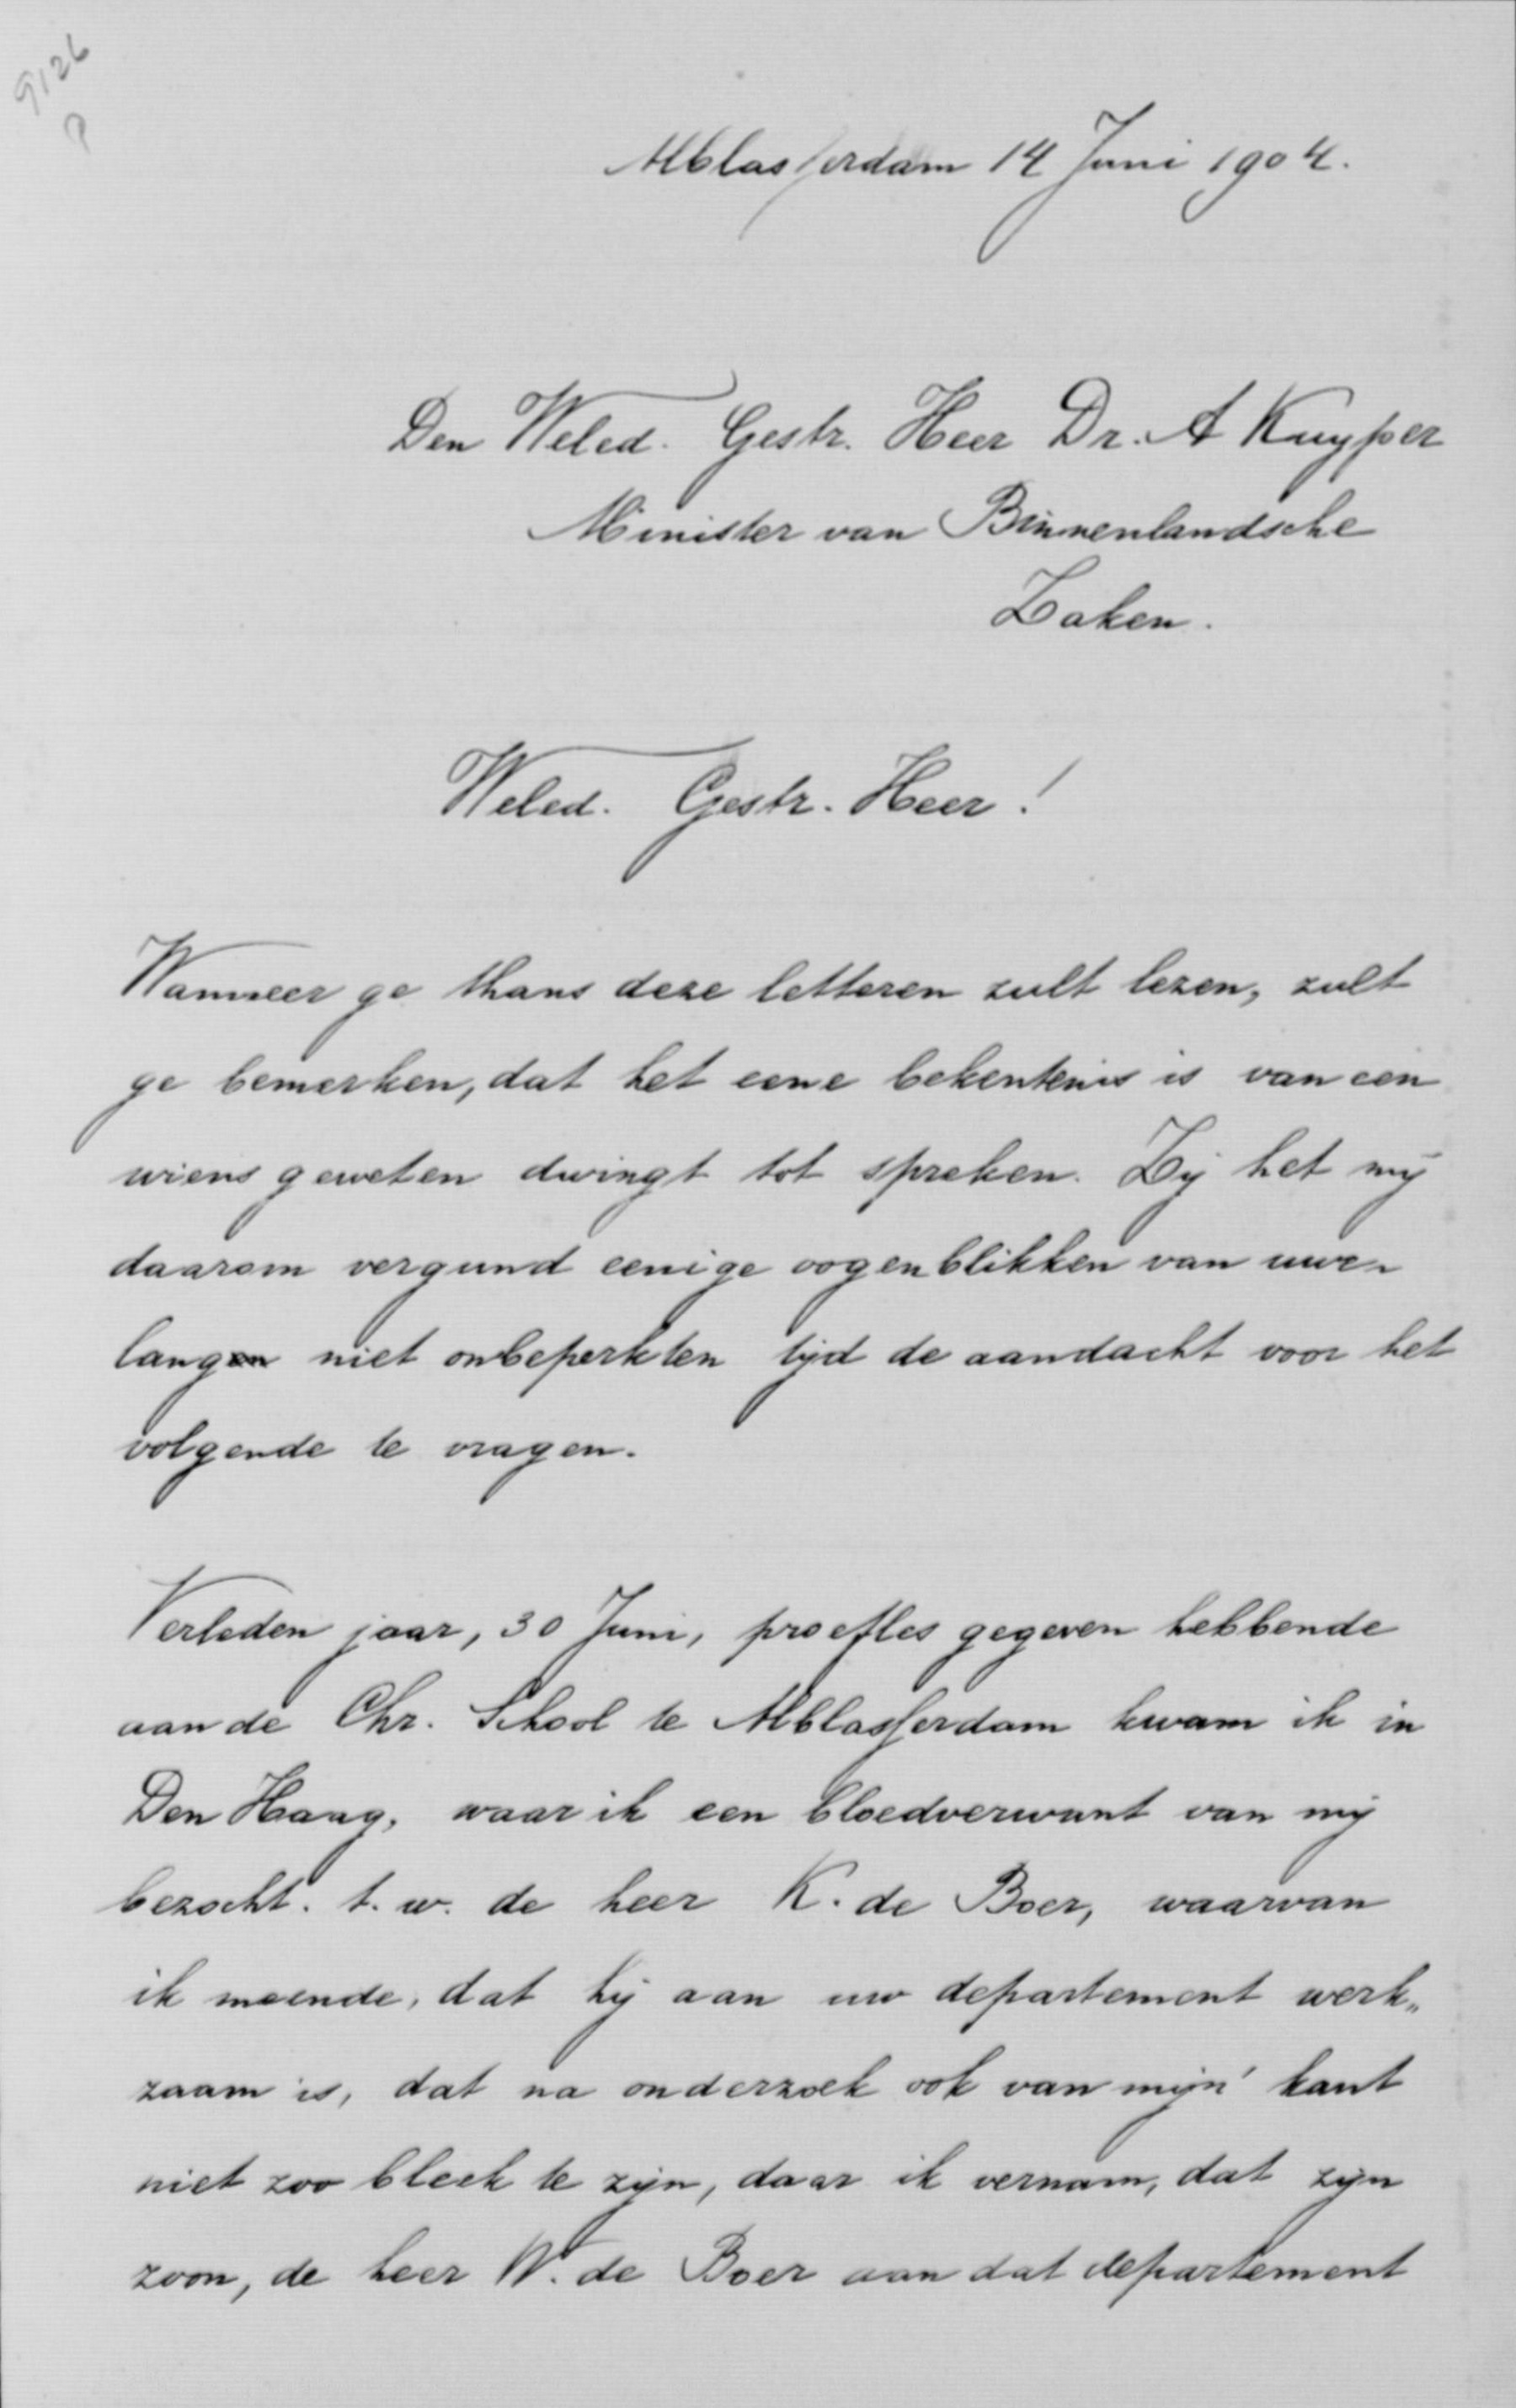 9126
P
Alblasserdam 14 Juni 1904.
Den Weled. Gestr. Heer Dr. A Kuyper
Minister van Binnenlandsche
Zaken.
Weled. Gestr. Heer!
Wanneer ge thans deze letteren zult lezen, zult
ge bemerken, dat het eene bekentenis is van een
wiens geweten dwingt tot spreken. Zij het mij
daarom vergund eenige oogenblikken van uwen
langen niet onbeperkten tijd de aandacht voor het
volgende te vragen.
Verleden jaar, 30 Juni, proefles gegeven hebbende
aan de Chr. School te Alblasserdam kwam ik in
Den Haag, waar ik een bloedverwant van mij
bezocht. t. w. de heer K. de Boer, waarvan
ik meende, dat hij aan uw departement werk„
zaam is, dat na onderzoek ook van mijn' kant
niet zoo bleek te zijn, daar ik vernam, dat zijn
zoon, de heer W. de Boer aan dat departement